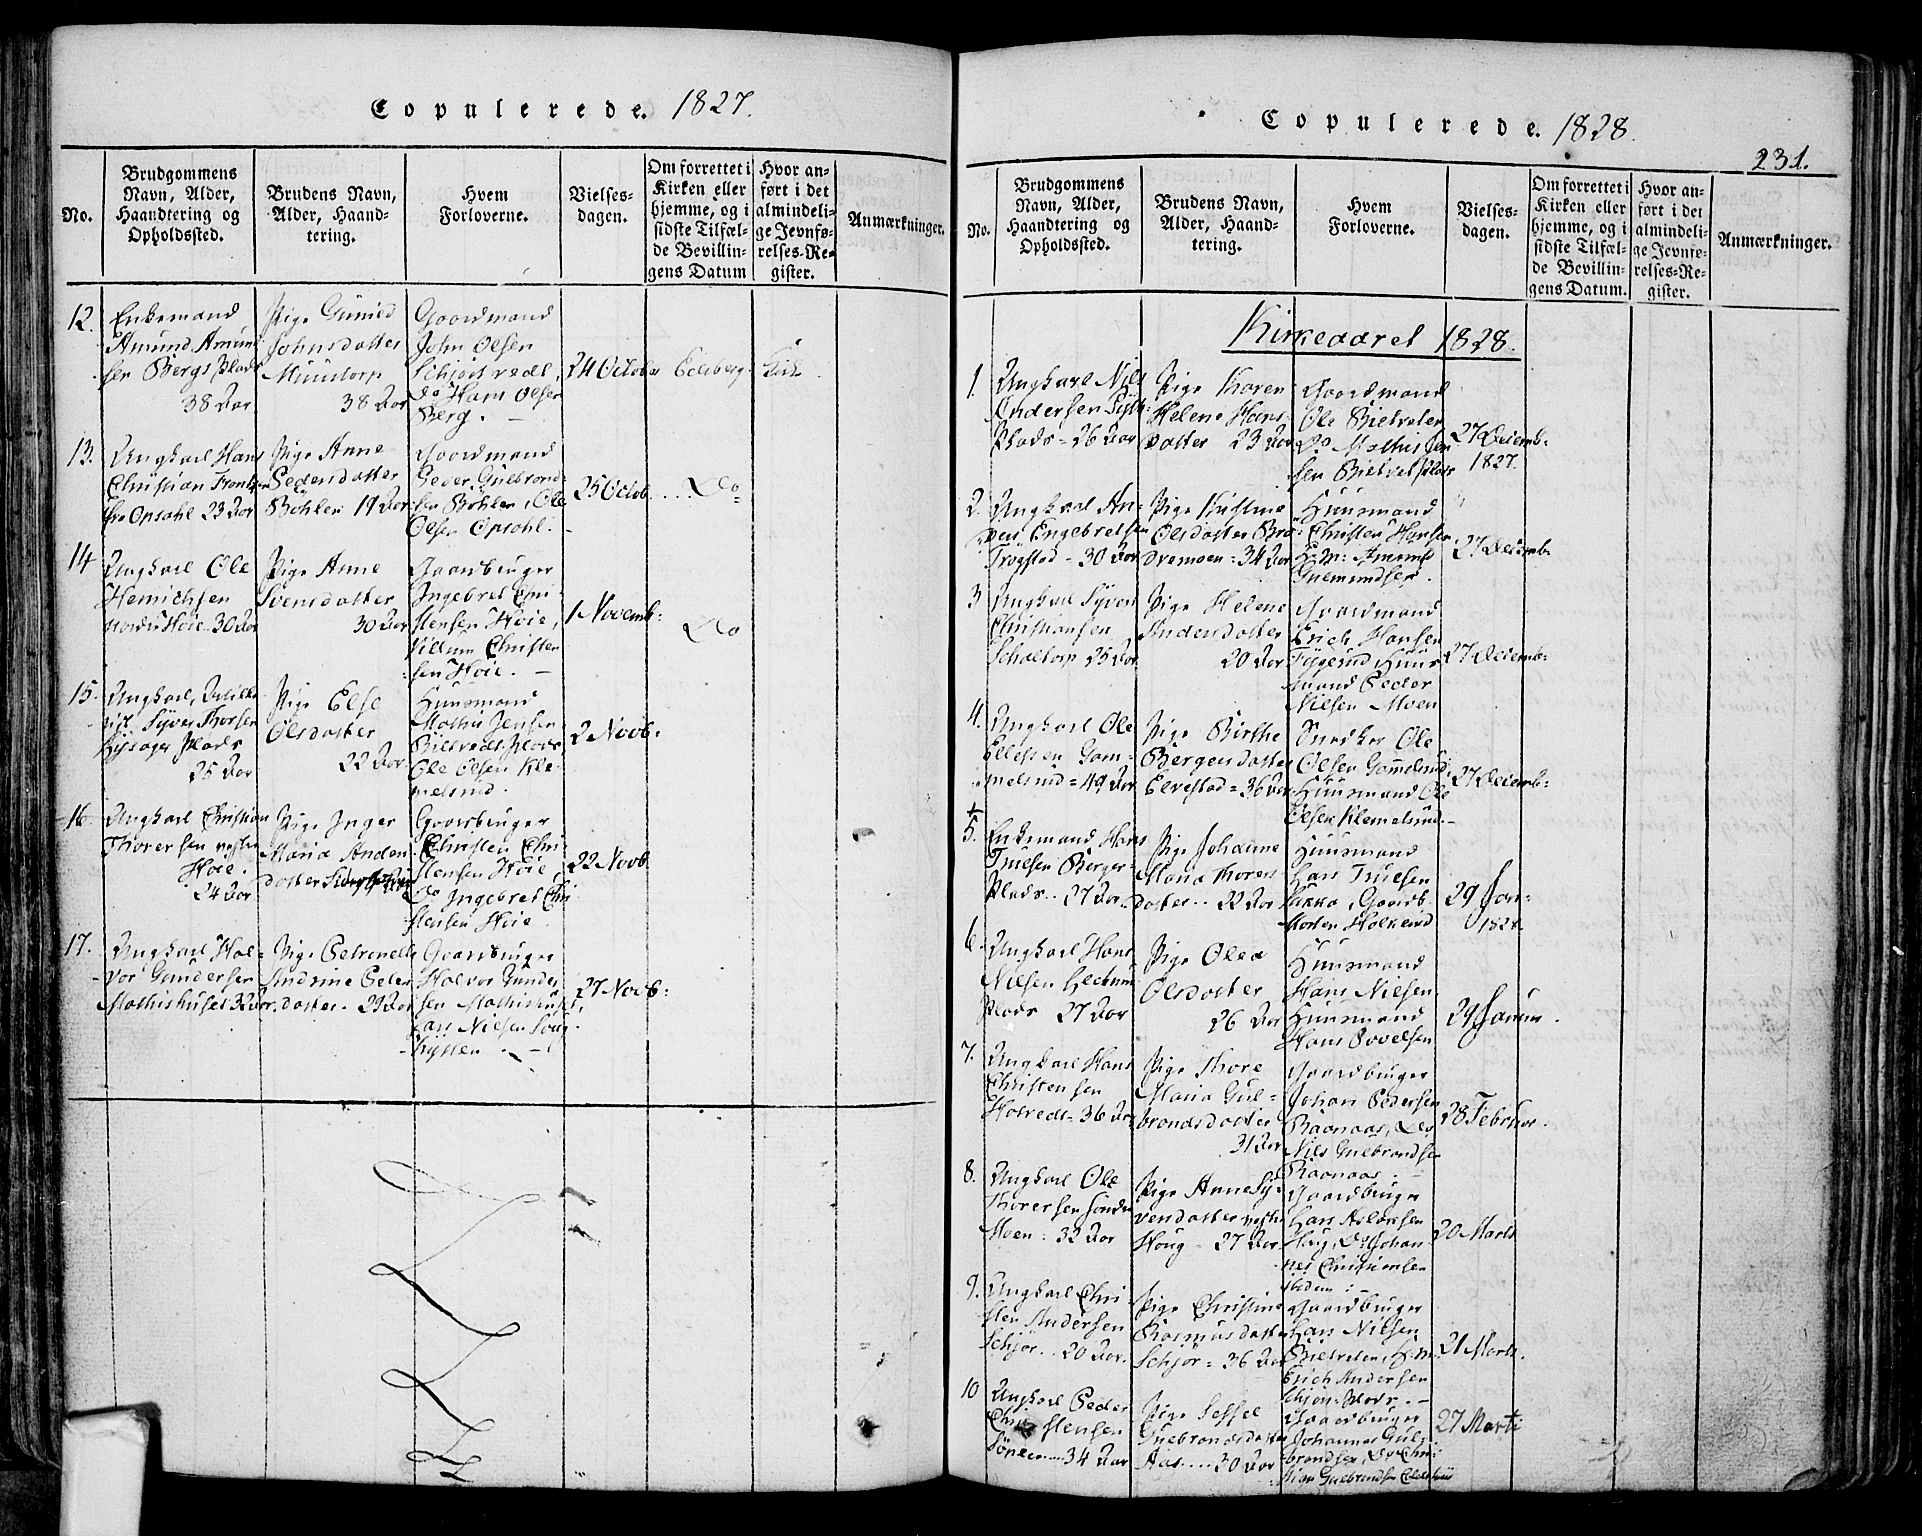 Copulerede. 1827.
No.
Brudgommens
Navn, Alder,
Haandtering og
Opholdssted.
Brudens Navn,
Alder, Haand-
tering.
Hvem
Forloverne.
Vielses-
dagen.
Om forrettet i
Kirken eller
hjemme, og i
sidste Tilfæl-
de Bevillin-
gens Datum
Hvor an-
ført i det
almindeli-
ge Jevnfø-
relses-Re-
gister.
Anmærkninger.
12.
Enkemand
Amund Amund
sen Bergs Plads
38 Aar
Pige Gunild
Johnsdatter
38 Aar
Gaardmand
John Olsen
do Hans Olsen
Berg. -
24 Octob
Edsberg
Kirke
13.
Ungkarl Hans
Christian
fra Opsahl 23 Aar
Pige Anne
Pedersdatter
Bøhler 19 Aar
Gaardmand
Peder Gulbrand
sen Bøhler, Ole
Olsen Opsahl. -
25 Octob
Do
14
Ungkarl Ole
Henrichsen
nordre Høie 30 Aar
Pige Anne
Svensdatter
30 Aar
Gaardbruger
Ingebret Chri-
stensen Høie,
Villum Christen
sen Høie. -
1 Novemb:
Do
15.
Ungkarl,
Syver Thorsen
Plads
25 Aar
Pige Else
Olsdatter
22 Aar
Huusmand
Mathis Jensen
Ole Olsen Kle-
melsrud.
2 Novb:
16.
Ungkarl Christian
Thoresen vestre
Høie.
24 Aar
Pige Inger
Maria Anders
datter
Gaardbruger
Christen Chri-
stensen Høie,
do Ingebret Chri
stensen Høie
22 Novb.
17.
Ungkarl Hal-
vor Gundersen
Mathishuset 32 Aar.
Pige Petronelle
Andrine Peders
datter. 29 Aar
Gaardbruger
Halvor Gunder
sen Mathishuset,
Lars Nielsen
27 Novb:
Copulerede. 1828.
231.
No.
Brudgommens
Navn, Alder,
Haandtering og
Opholdssted.
Brudens Navn,
Alder, Haand-
tering.
Hvem
Forloverne.
Vielses-
dagen.
Om forrettet i
Kirken eller
hjemme, og i
sidste Tilfæl-
de Bevillin-
gens Datum.
Hvor an-
ført i det
almindeli-
ge Jevnfø-
relses-Re-
gister.
Anmærkninger.
Kirkeaaret 1828.
1.
Ungkarl Nils
Andersen
Plads - 26 Aar
Pige Karen
Helene Hans-
datter 23 Aar
Gaardmand
Ole
Do Mathis Jen
sen
27 Decemb:
1827.
2.
Ungkarl An-
ders Engebretsen
Trøgstad - 30 Aar
Pige Kirstine
Olsdatter Bra-
dramoen = 34 Aar
Huusmand
Christen Hansen
H:m: Amund
Guemundsen.
27 Decemb.
3
Ungkarl Syver
Christiansen
25 Aar
Pige Helene
Andersdatter
20 Aar
Gaardmand
Erich Hansen
Huus
mand Peder
Nielsen Moen
27 Decemb:
4.
Ungkarl Ole
Ellefsen Gam-
melsrud = 49 Aar
Pige Birthe
Bergersdatter
Elvestad = 36 Aar
Snedker Ole
Olsen Gammelsrud
Huusmand Ole
Olsen Klemelsrud. -
27 Decemb:
5.
Enkemand Hans
Truelsen Berger-
Plads.. 27 Aar.
Pige Johanne
Maria Thores
datter.. 22 Aar
Huusmand
Lars Truelsen
Hakka, Gaardb.
Morten
29 Jan:
1828.
6.
Ungkarl Hans
Nilsen
Plads 27 Aar
Pige Olea
Olsdatter
26 Aar
Huusmand
Hans Nielsen
Huusmand
Hans Povelsen
29 Januar.
7.
Ungkarl Hans
Christensen
36 Aar
Pige Thore
Maria Gul-
brandsdatter
31 Aar
Gaardbruger
Johan Pedersen
Raanaas, Do
Nils Gulbrandsen
Raanaas -
28 Februar.
8.
Ungkarl Ole
Thoresen søndre
Moen = 32 Aar
Pige Anne Sy-
versdatter vestre
Houg - 27 Aar
Gaardbruger
Lars Aslaksen
Haug, Do Johan
nes Christiansen
ibidem: -
20 Marts
9.
Ungkarl Chri
sten Andersen
Schjør.. 20 Aar.
Pige Christine
Rasmusdatter
Schjør = 36 Aar
Gaardbruger
Lars Nilsen
Erich Andersen
Schjør Plads. -
21 Marts.
10
Ungkarl Peder
Christensen
34 Aar
Pige Sessel
Gulbrandsdatter
Aas.... 30 Aar
Gaardbruger
Johannes Gul-
brandsen, Do Chri
27 Marts